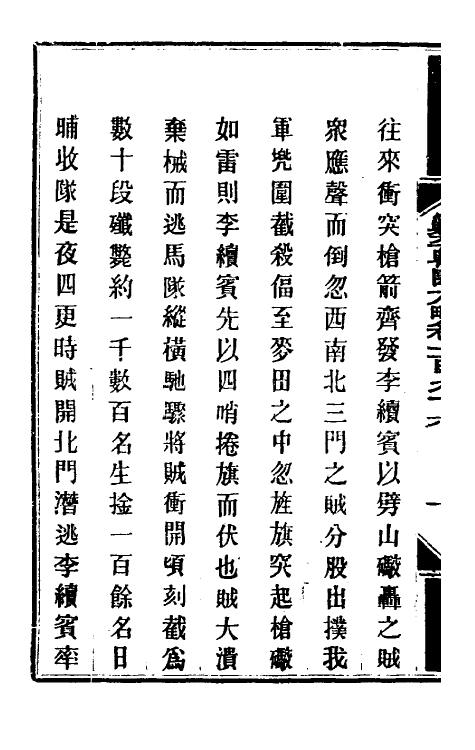 往來衝突槍箭齊發李續賓以劈山礮轟之賊
衆應聲而倒忽西南北三門之賊分股出撲我
軍兠圍截殺偪至麥田之中忽旌旗突起槍礮
如雷則李續賓先以四哨捲旗而伏也賊大潰
棄械而逃馬隊縱橫馳驟將賊衝開頃刻截爲
數十段殲斃約一千數百名生擒一百餘名日
晡收隊是夜四更時賊開北門潛逃李續賓率